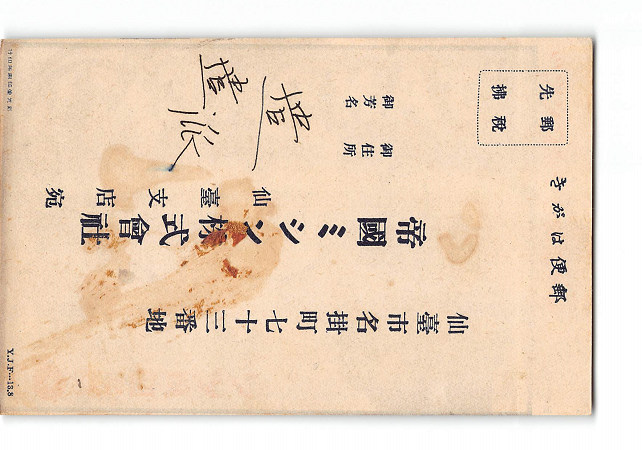 郵便はがき
郵税
先拂
仙臺市名掛町七十三番地
帝國ミシン株式會社
仙臺支店宛
御住所
御芳名
Y.J.F—13.8